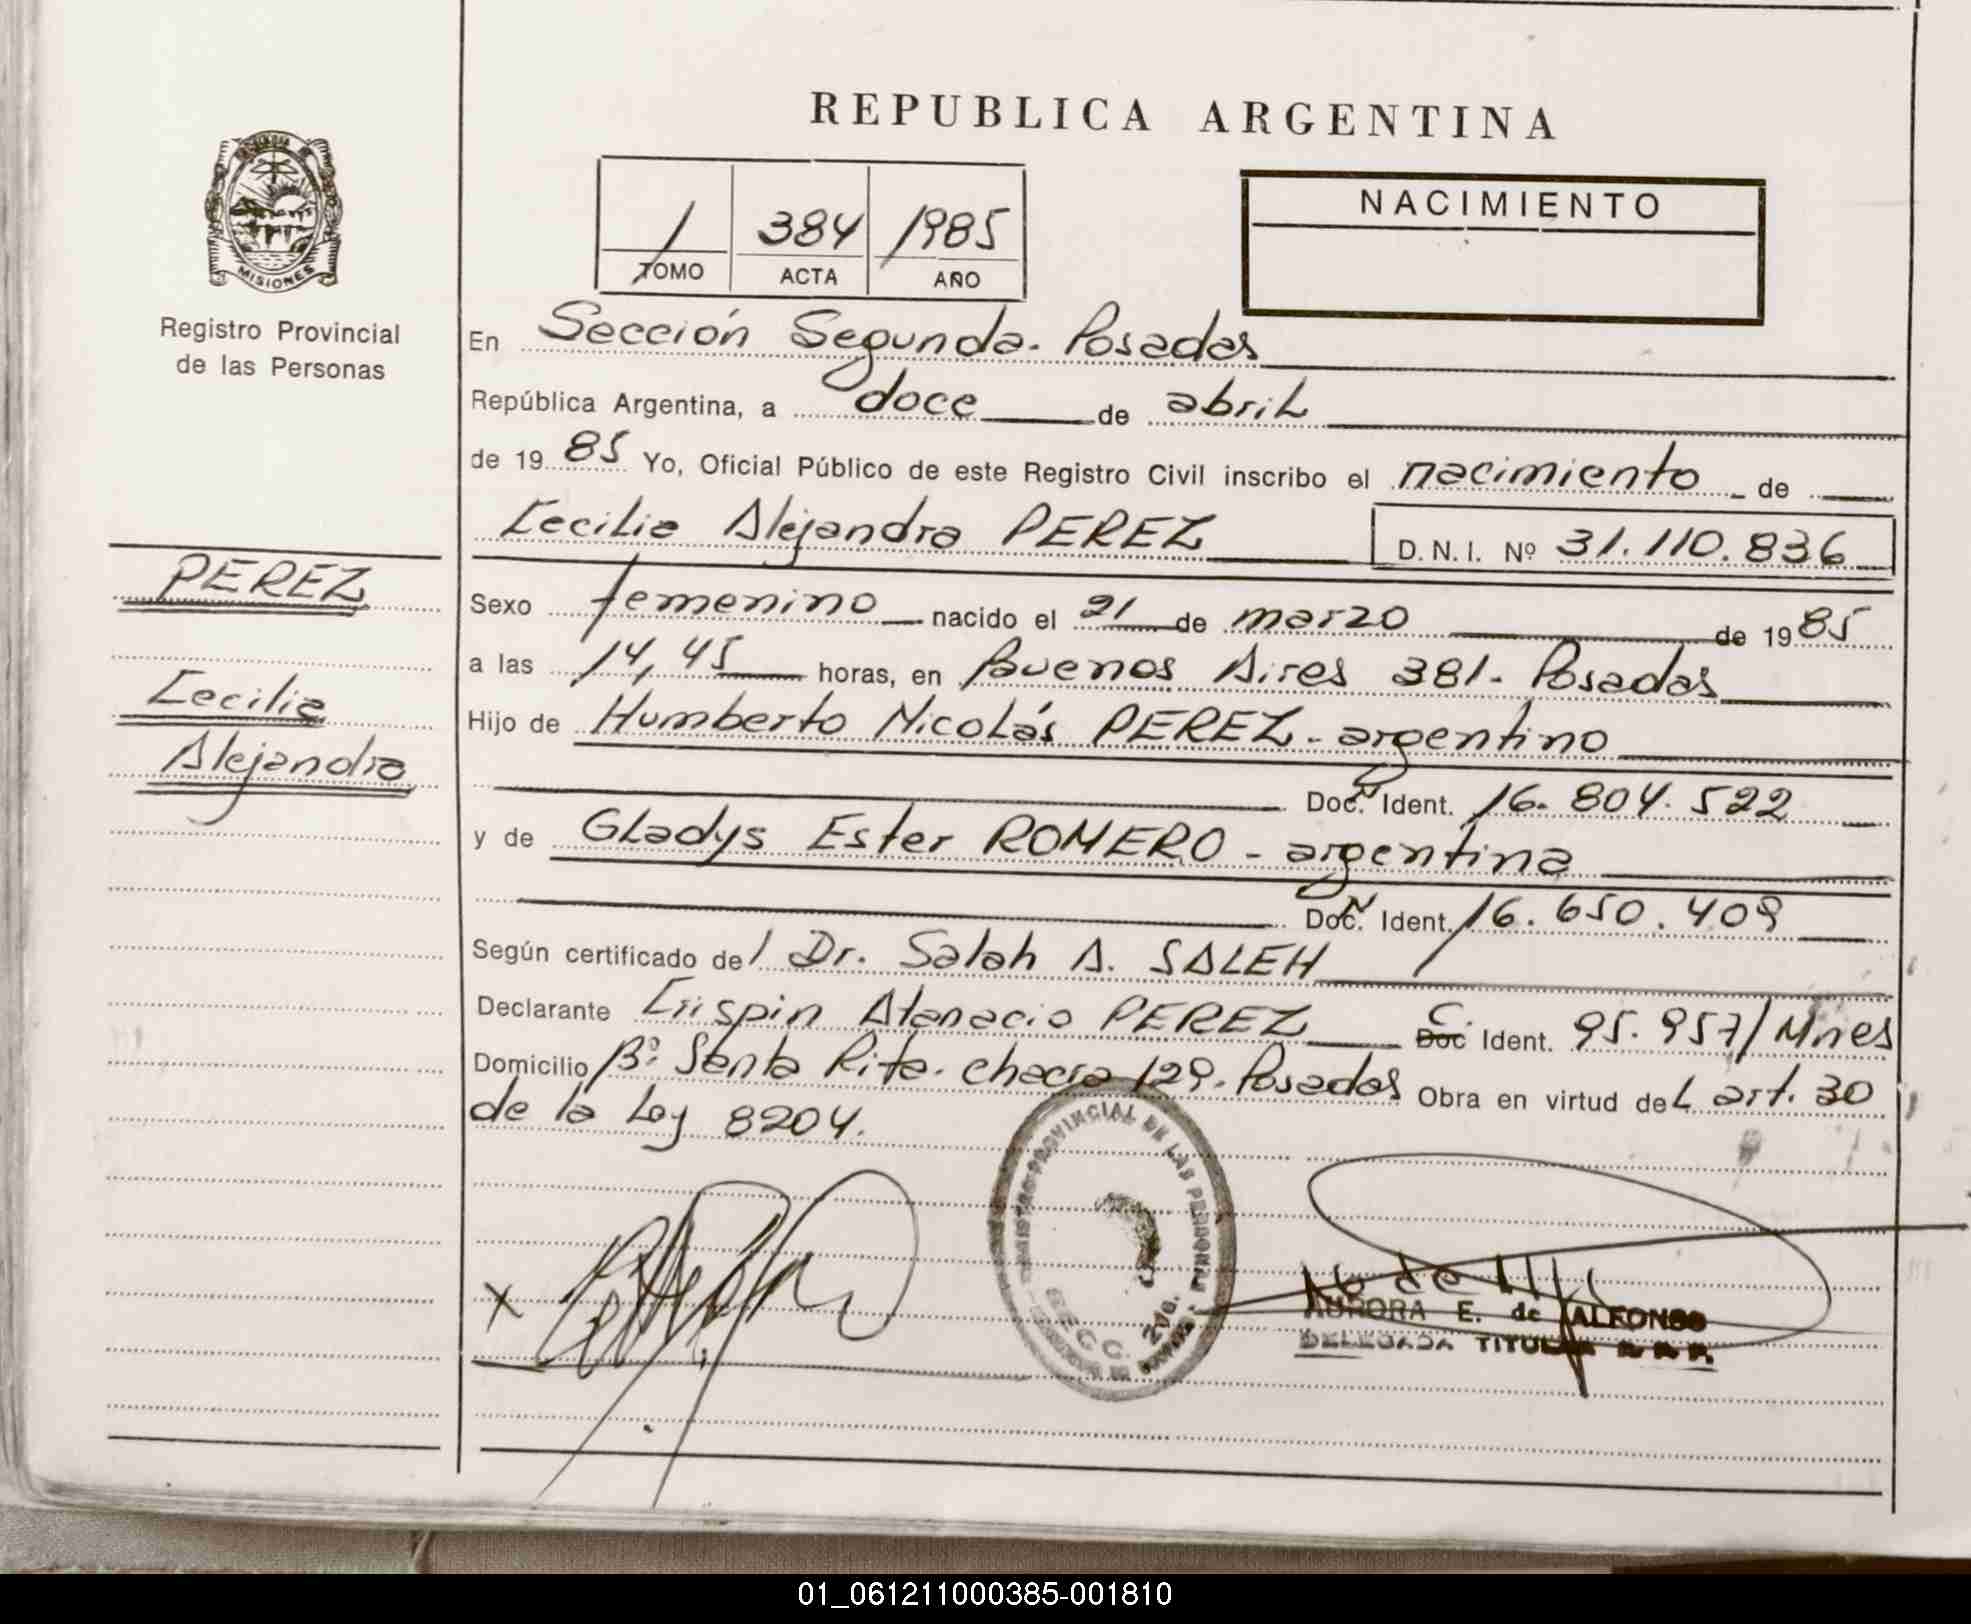 REPUBLICA ARGENTINA
MISIONES
Registro Provincial
de las Personas
1 384 1985
TOMO ACTA AÑO
NACIMIENTO
En Sección Segunda. Posadas
República Argentina, a doce de abril
de 1985 Yo, Oficial Público de este Registro Civil inscribo el nacimiento de
Cecilia Alejandra PEREZ D.N.I. Nº 31.110.836
PEREZ
Cecilia
Alejandra
Sexo femenino nacido el 21 de marzo de 1985
a las 14,45 horas, en Buenos Aires 381. Posadas
Hijo de Humberto Nicolás PEREZ - argentino
Doc. N Ident. 16.804.522
y de Gladys Ester ROMERO - argentina
Doc. N Ident. 16.650.409
Según certificado del Dr. Salah A. SALEH
Declarante Crispin Atanacio PEREZ Doc C. Ident. 95.957/Mnes
Domicilio Bº Santa Rita. chacra 129. Posadas Obra en virtud del art. 30
de la Ley 8204.
REGISTRO PROVINCIAL DE LAS PERSONAS
x
AURORA E. de ALFONSO
DELEGADA TITULAR R. P. P.
01_061211000385-001810